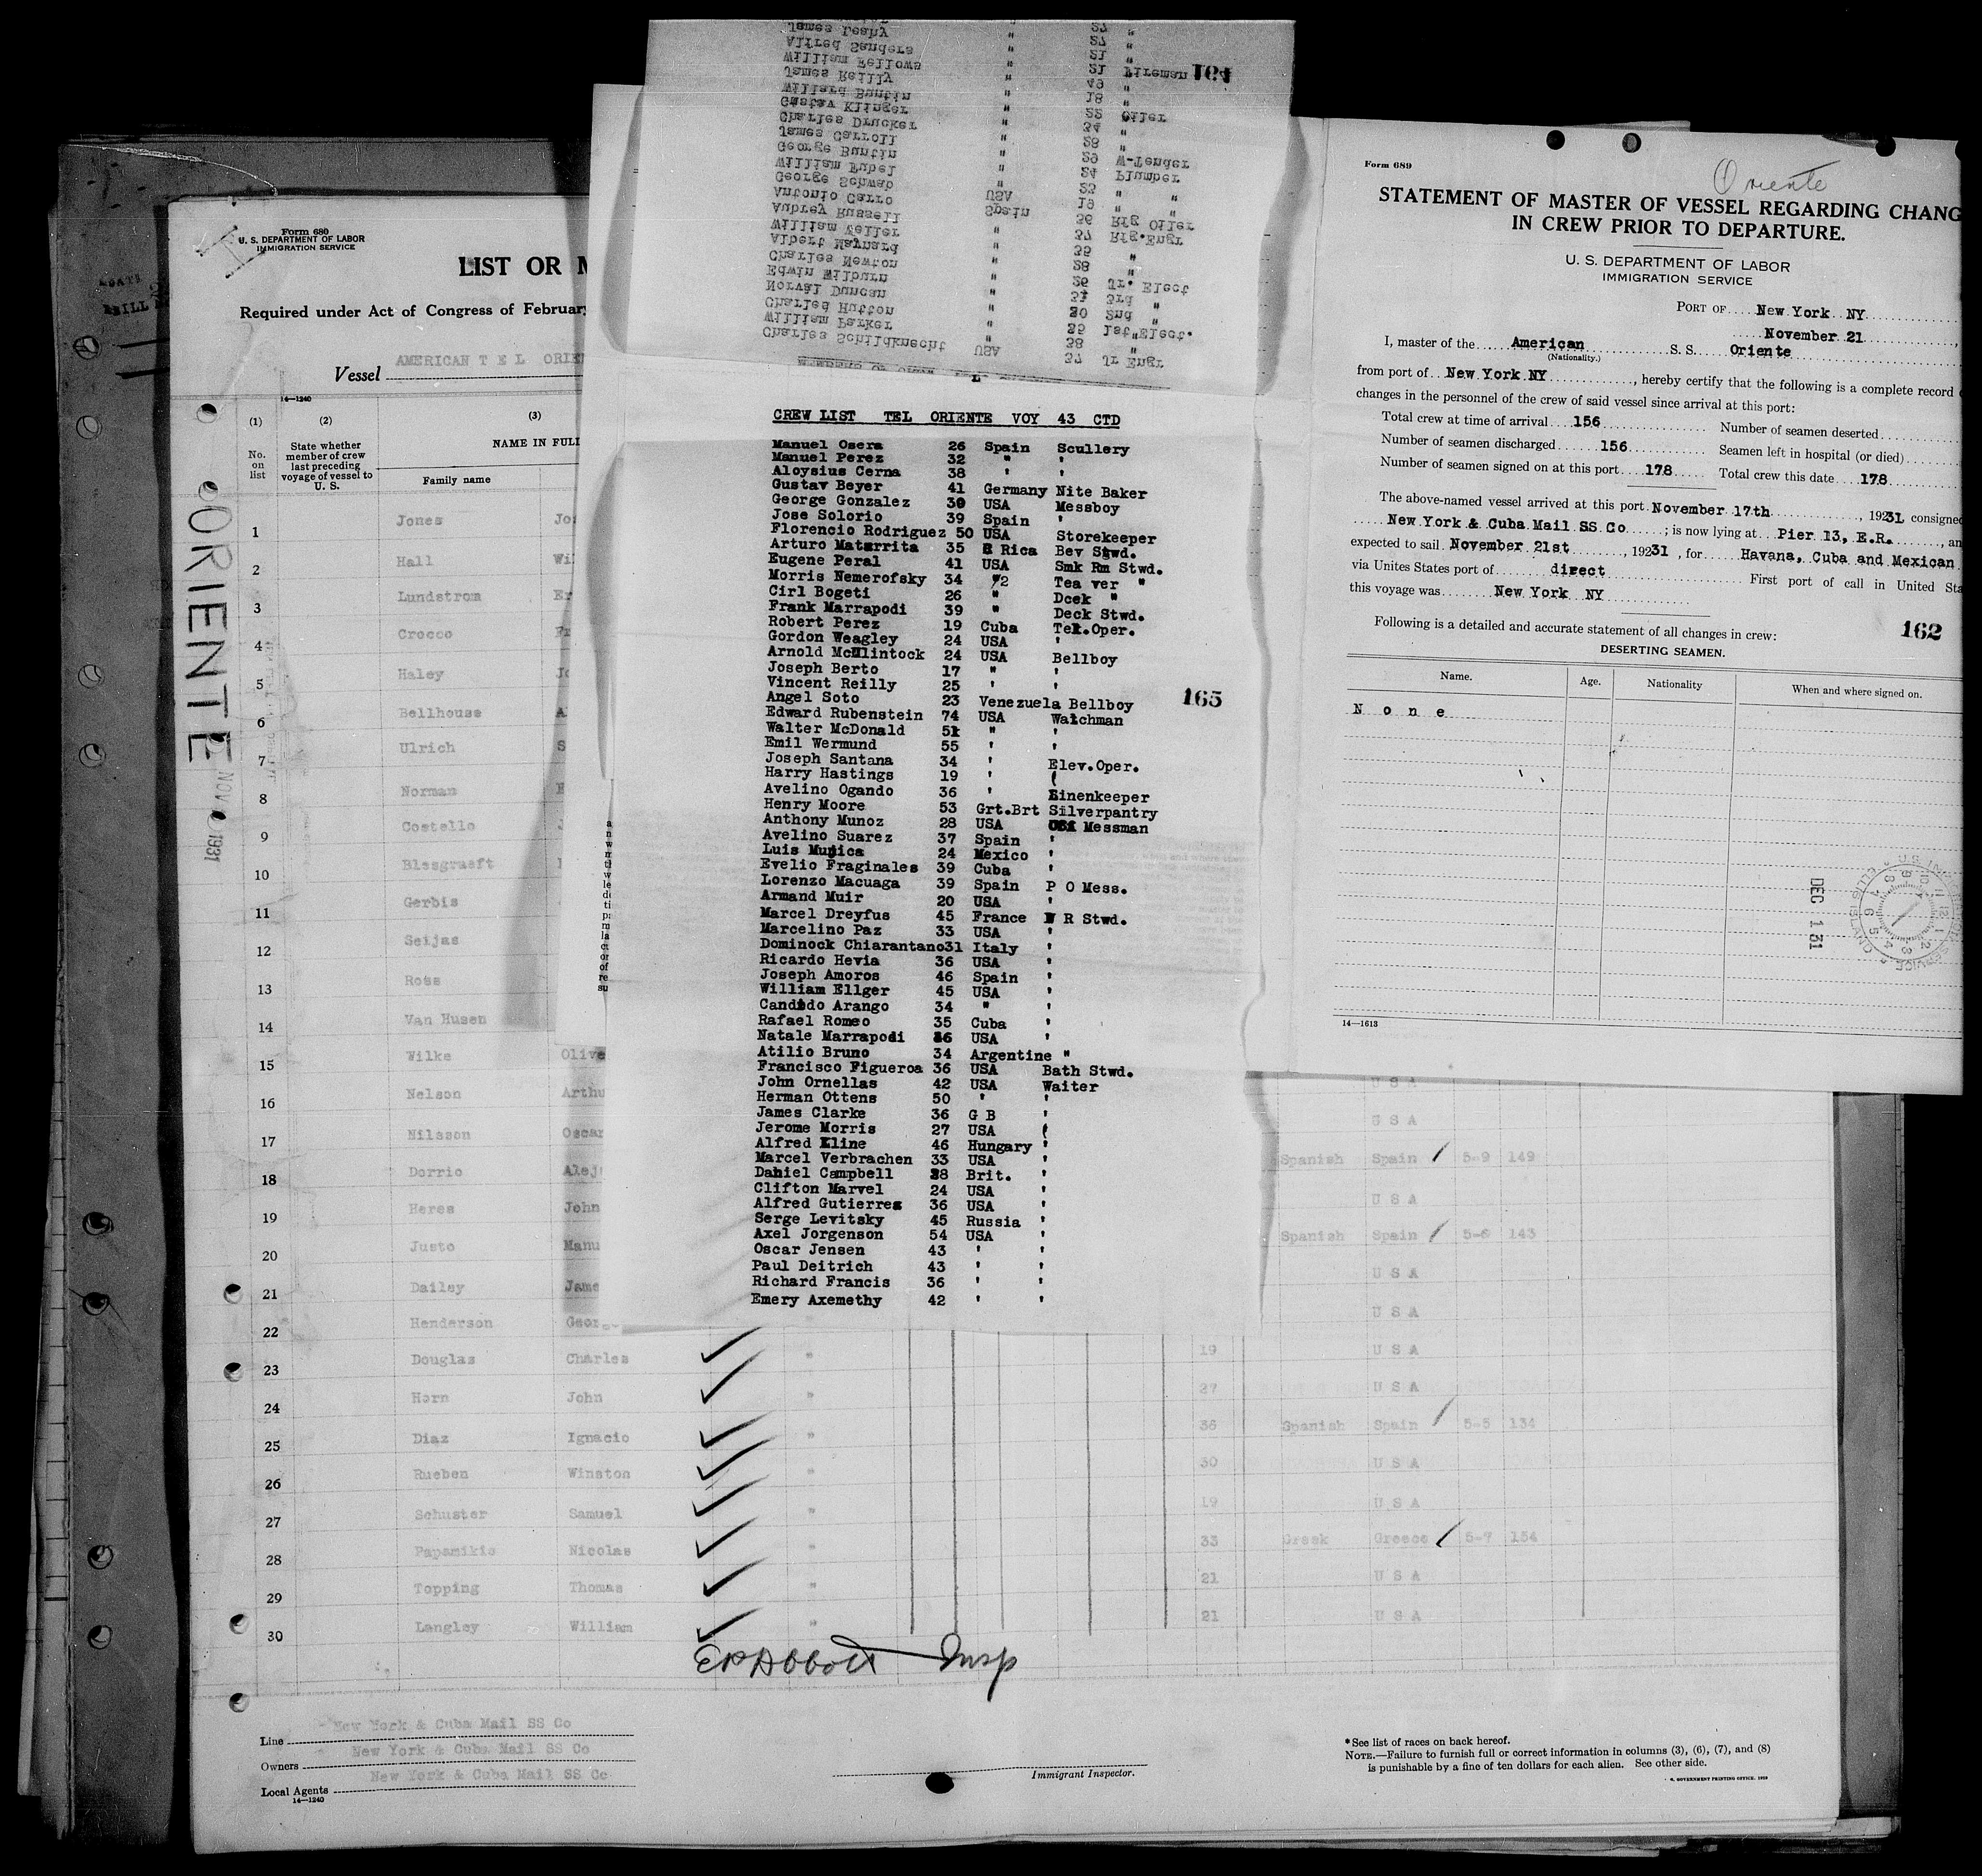 James Leahy " 27 "
Alfred Sanders " 27 "
William Fellows " 21 "
James Reilly " 21 Fireman 164
Willard Buntin " 49 "
Gustav Klinger " 18 "
Charles Drucker " 22 Oiler
James Carroll " 34 "
George Buntin " 28 "
William Fubel " 29 W-Tender
George Schwab " 24 Plumber
Antonio Carro USA 23 " "
Aubrey Russell Spain 19 " "
William Weller " 36 Rfg Oiler
Albert Maynard " 37 Rfg.Engr
Charles Newton " 35 "
Edwin Wilburn " 28 "
Norval Duncan " 26 Jr. Elect
Charles Hutton " 31 3rd "
William Parker " 30 2nd "
Charles Schildknecht " 25 1st Elect.
USA 38 "
37 Jr Engr
Form 680
U. S. DEPARTMENT OF LABOR
IMMIGRATION SERVICE
LIST OR M
Required under Act of Congress of February
Vessel AMERICAN T E L ORIEN
14-1240
(1) (2) (3)
No. on list
State whether member of crew last preceding voyage of vessel to U. S.
NAME IN FULL
Family name
ORIENTE
NOV 1931
1 Jones
2 Hall
3 Lundstrom
4 Crocco
5 Haley
6 Bellhouse
7 Ulrich
8 Norman
9 Costello
10 Blesgraeft
11 Gerbis
12 Seijas
13 Ross
14 Van Husen
15 Wilke Olive
16 Nelson Arthu
17 Nilsson Oscar
18 Dorrio Alej Spanish Spain 5-9 149
19 Heres John U S A
20 Justo Manu Spanish Spain 5-8 143
21 Dailey Jame U S A
22 Henderson Geor U S A
23 Douglas Charles " 19 U S A
24 Horn John " 27 U S A
25 Diaz Ignacio " 36 Spanish Spain 5-5 134
26 Rueben Winston " 30 U S A
27 Schuster Samuel " 19 U S A
28 Papamikis Nicolas " 33 Greek Greece 5-7 154
29 Topping Thomas " 21 U S A
30 Langley William " 21 U S A
EPAbbott Insp
Line New York & Cuba Mail SS Co
Owners New York & Cuba Mail SS Co
Local Agents New York & Cuba Mail SS Co
14-1240
Immigrant Inspector.
*See list of races on back hereof.
NOTE.—Failure to furnish full or correct information in columns (3), (6), (7), and (8)
is punishable by a fine of ten dollars for each alien. See other side.
CREW LIST TEL ORIENTE VOY 43 CTD
Manuel Osera 26 Spain Scullery
Manuel Perez 32 " '
Aloysius Cerna 38 ' '
Gustav Beyer 41 Germany Nite Baker
George Gonzalez 39 USA Messboy
Jose Solorio 39 Spain '
Florencio Rodriguez 50 USA Storekeeper
Arturo Matarrita 35 R Rica Bev Stwd.
Eugene Peral 41 USA Smk Rm Stwd.
Morris Nemerofsky 34 "2 Tea ver "
Cirl Bogeti 26 " Dcek "
Frank Marrapodi 39 " Deck Stwd.
Robert Perez 19 Cuba Tel.Oper.
Gordon Weagley 24 USA '
Arnold McClintock 24 USA Bellboy
Joseph Berto 17 " '
Vincent Reilly 25 ' '
Angel Soto 23 Venezuela Bellboy
165
Edward Rubenstein 74 USA Watchman
Walter McDonald 51 " '
Emil Wermund 55 ' '
Joseph Santana 34 ' Elev.Oper.
Harry Hastings 19 ' (
Avelino Ogando 36 ' Linenkeeper
Henry Moore 53 Grt.Brt Silverpantry
Anthony Munoz 28 USA Messman
Avelino Suarez 37 Spain '
Luis Mujica 24 Mexico '
Evelio Fraginales 39 Cuba '
Lorenzo Macuaga 39 Spain P O Mess.
Armand Muir 20 USA '
Marcel Dreyfus 45 France W R Stwd.
Marcelino Paz 33 USA '
Dominock Chiarantano31 Italy '
Ricardo Hevia 36 USA '
Joseph Amoros 46 Spain '
William Ellger 45 USA '
Candido Arango 34 " '
Rafael Romeo 35 Cuba '
Natale Marrapodi 36 USA '
Atilio Bruno 34 Argentine "
Francisco Figueroa 36 USA Bath Stwd.
John Ornellas 42 USA Waiter
Herman Ottens 50 ' '
James Clarke 36 G B '
Jerome Morris 27 USA (
Alfred Kline 46 Hungary '
Marcel Verbrachen 33 USA '
Daniel Campbell 38 Brit. '
Clifton Marvel 24 USA '
Alfred Gutierres 36 USA '
Serge Levitsky 45 Russia '
Axel Jorgenson 54 USA '
Oscar Jensen 43 ' '
Paul Deitrich 43 ' '
Richard Francis 36 ' '
Emery Axemethy 42 ' '
Form 689
Oriente
STATEMENT OF MASTER OF VESSEL REGARDING CHANG
IN CREW PRIOR TO DEPARTURE.
U. S. DEPARTMENT OF LABOR
IMMIGRATION SERVICE
PORT OF New York NY
November 21
I, master of the American S. S. Oriente
(Nationality.)
from port of New York NY, hereby certify that the following is a complete record
changes in the personnel of the crew of said vessel since arrival at this port:
Total crew at time of arrival 156 Number of seamen deserted
Number of seamen discharged 156 Seamen left in hospital (or died)
Number of seamen signed on at this port 178 Total crew this date 178
The above-named vessel arrived at this port November 17th, 1931 consigned
New York & Cuba Mail SS Co; is now lying at Pier 13, E.R., an
expected to sail November 21st, 1931, for Havana, Cuba and Mexican
via Unites States port of direct First port of call in United Sta
this voyage was New York NY
Following is a detailed and accurate statement of all changes in crew:
162
DESERTING SEAMEN.
Name. Age. Nationality When and where signed on.
N o n e
DEC 1 31
14-1613